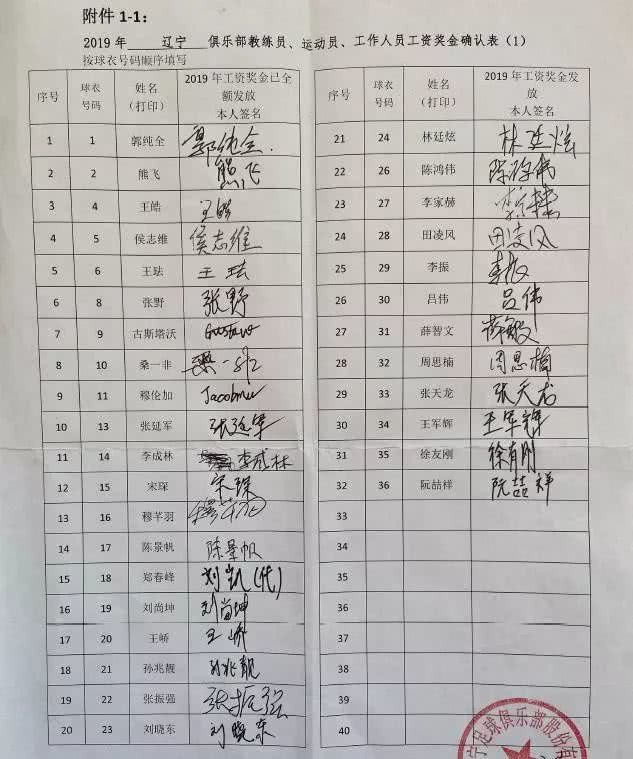 附件 1-1:
2019 年 辽宁 俱乐部教练员、运动员、工作人员工资奖金确认表（1）
按球衣号码顺序填写
序号 球衣号码 姓名（打印） 2019 年工资奖金已全额发放 本人签名
1 1 郭纯全 郭纯全
2 2 熊飞 熊飞
3 4 王皓 王皓
4 5 侯志维 侯志维
5 6 王珐 王珐
6 8 张野 张野
7 9 古斯塔沃 Gustavo
8 10 桑一非 桑一非
9 11 穆伦加 Jacobmu
10 13 张延军 张延军
11 14 李成林 李成林
12 15 宋琛 宋琛
13 16 穆芊羽
14 17 陈景帆 陈景帆
15 18 郑春峰 刘凯(代)
16 19 刘尚坤 刘尚坤
17 20 王峤 王峤
18 21 孙兆靓 孙兆靓
19 22 张振强 张振强
20 23 刘晓东 刘晓东
序号 球衣号码 姓名（打印） 2019 年工资奖金发放 本人签名
21 24 林廷炫 林廷炫
22 26 陈鸿伟 陈鸿伟
23 27 李家赫
24 28 田凌风 田凌风
25 29 李振 李振
26 30 吕伟 吕伟
27 31 薛智文
28 32 周思楠 周思楠
29 33 张天龙 张天龙
30 34 王军辉 王军辉
31 35 徐友刚 徐友刚
32 36 阮喆祥 阮喆祥
33
34
35
36
37
38
39
40
宁足球俱乐部股份有